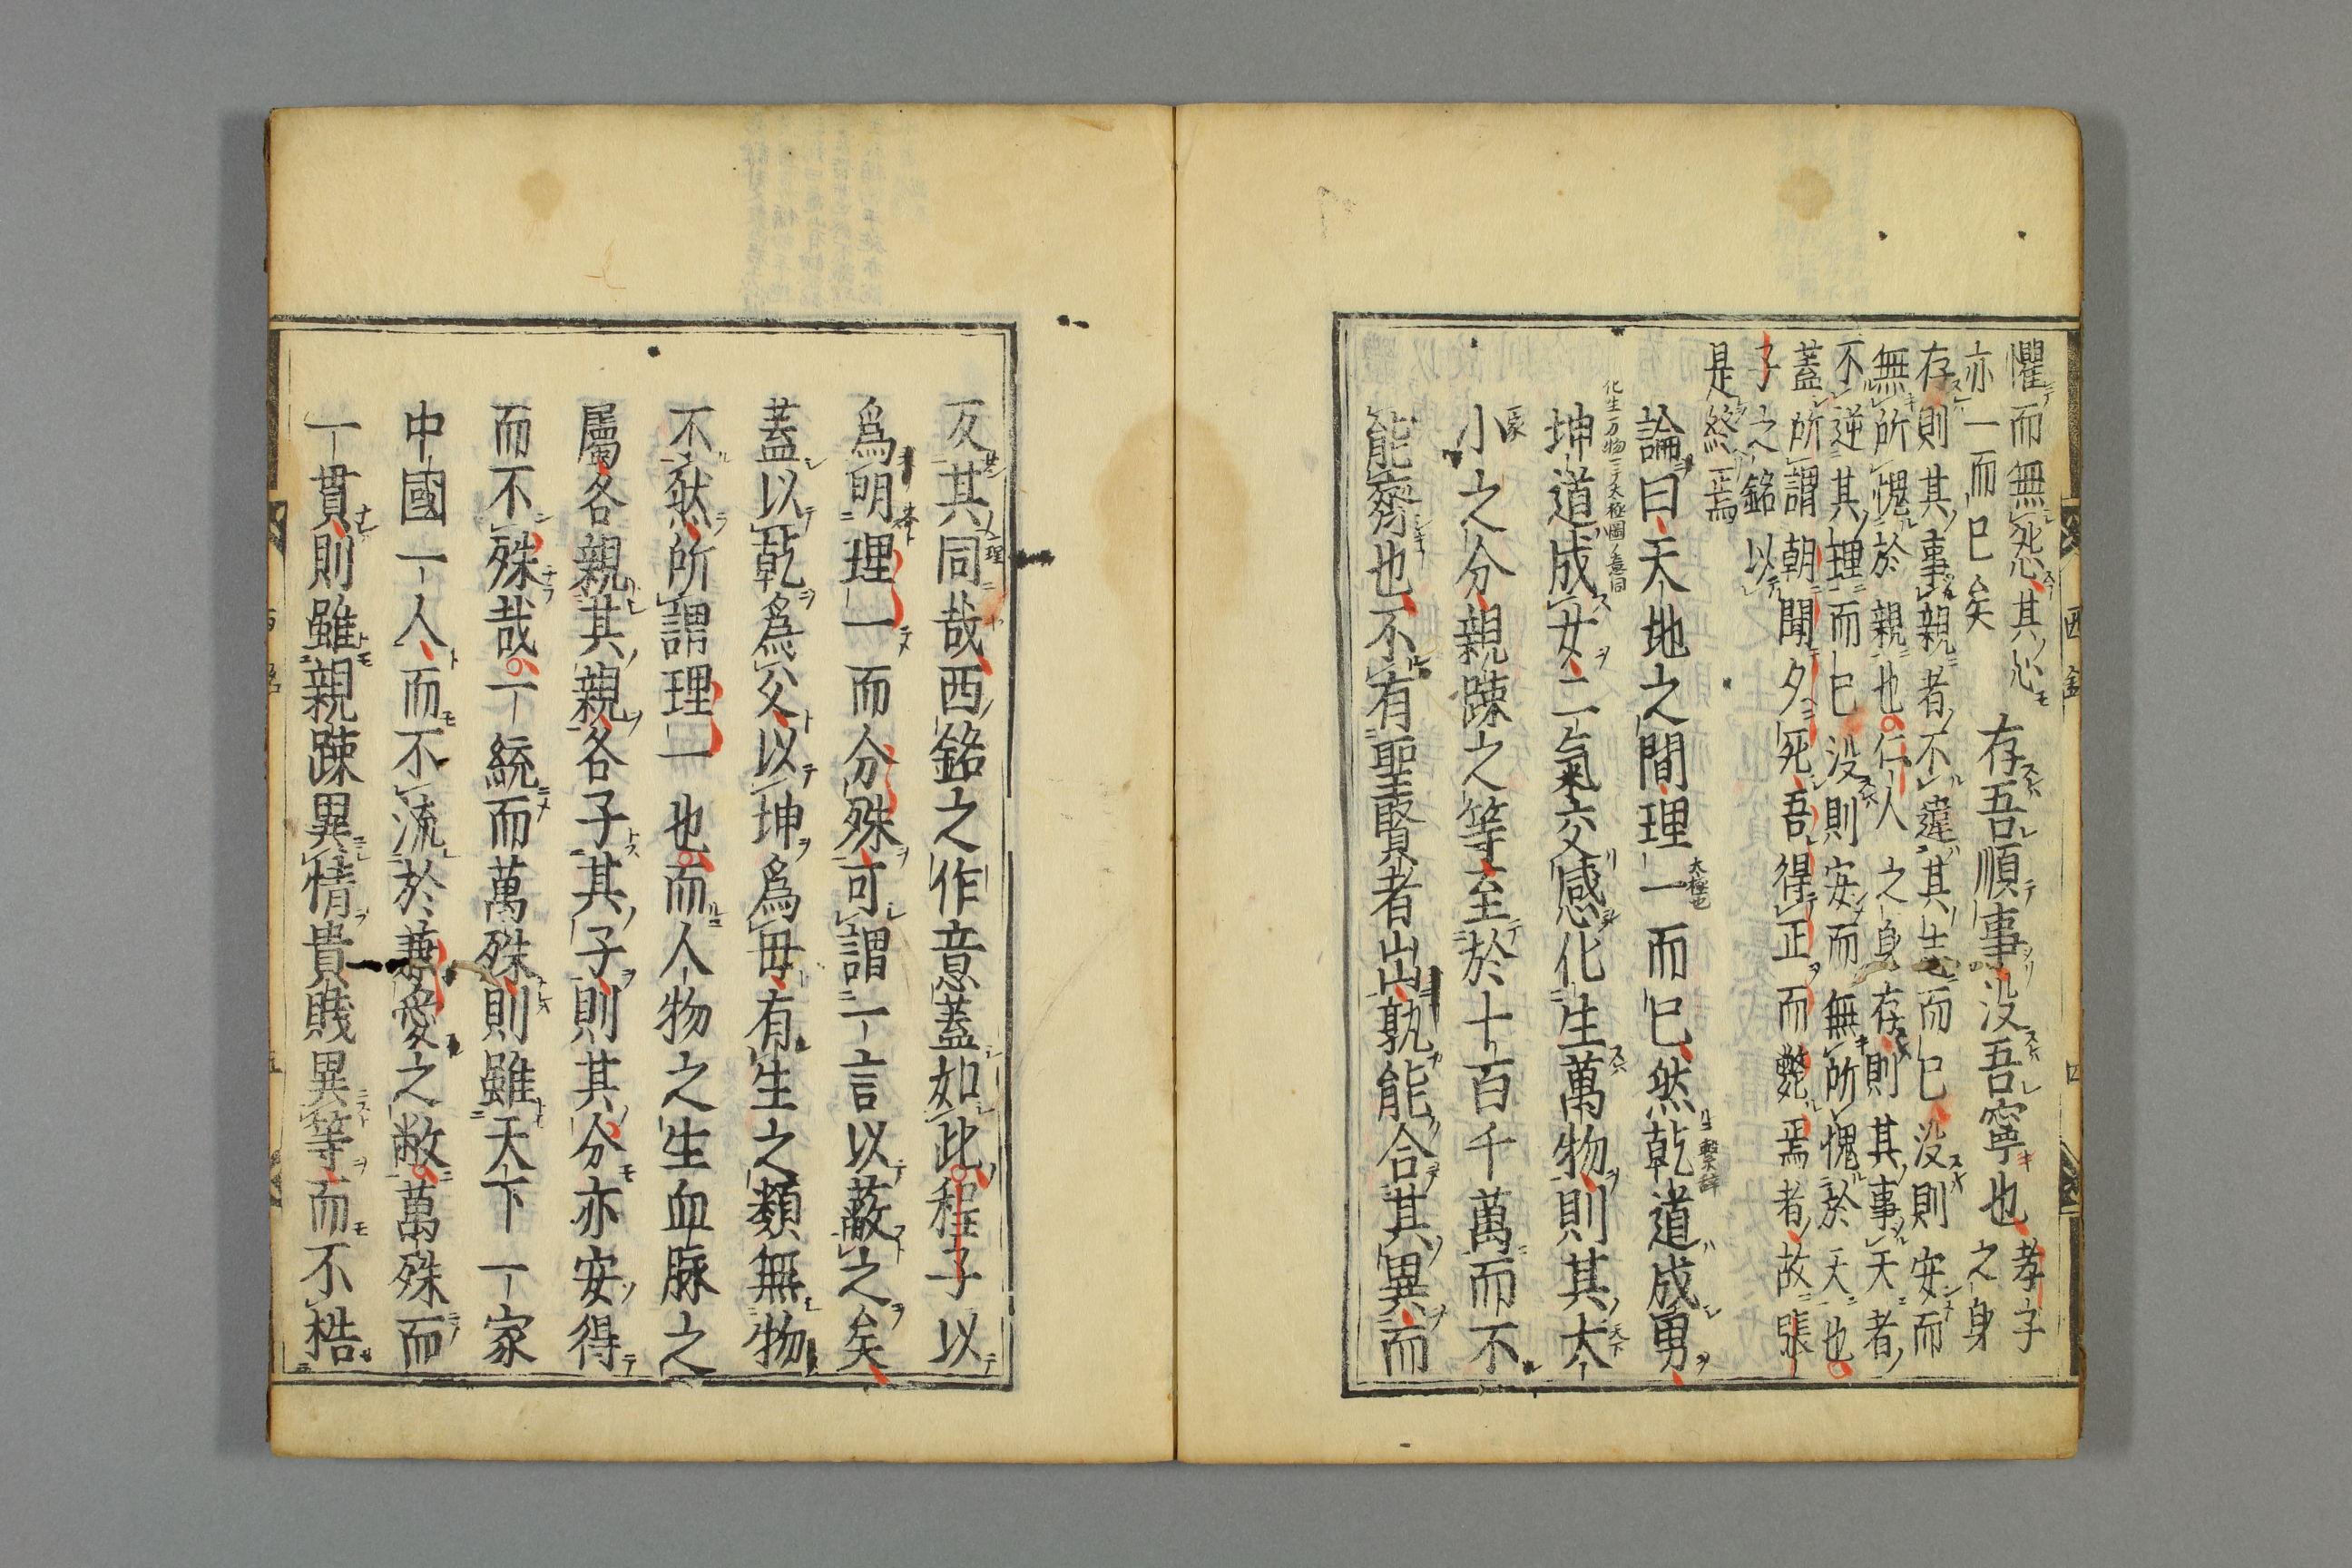 懼而無怨其心
亦一而已矣
存吾順事没吾寧也
孝子
之身
存則其事親者不違其志而已没則安而
無所愧於親也仁人之身存則其事天者
不逆其理而已没則安而無所愧於天也
蓋所謂朝聞夕死吾得正而斃焉者故張
子之銘以
是終焉
論曰天地之間理一而已然乾道成男
太極也
繋辞
坤道成女二氣交感化生萬物則其大
小之分親踈之等至於十百千萬而不
能齊也不有聖賢者出孰能合其異而
反其同哉西銘之作意蓋如此程子以
爲明理一而分殊可謂一言以蔽之矣
蓋以乾爲父以坤爲母有生之類無物
不然所謂理一也而人物之生血脉之
屬各親其親各子其子則其分亦安得
而不殊哉一統而萬殊則雖天下一家
中國一人而不流於兼愛之敝萬殊而
一貫則雖親踈異情貴賤異等而不梏